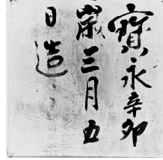 寶永辛卯
歳三月五
日造